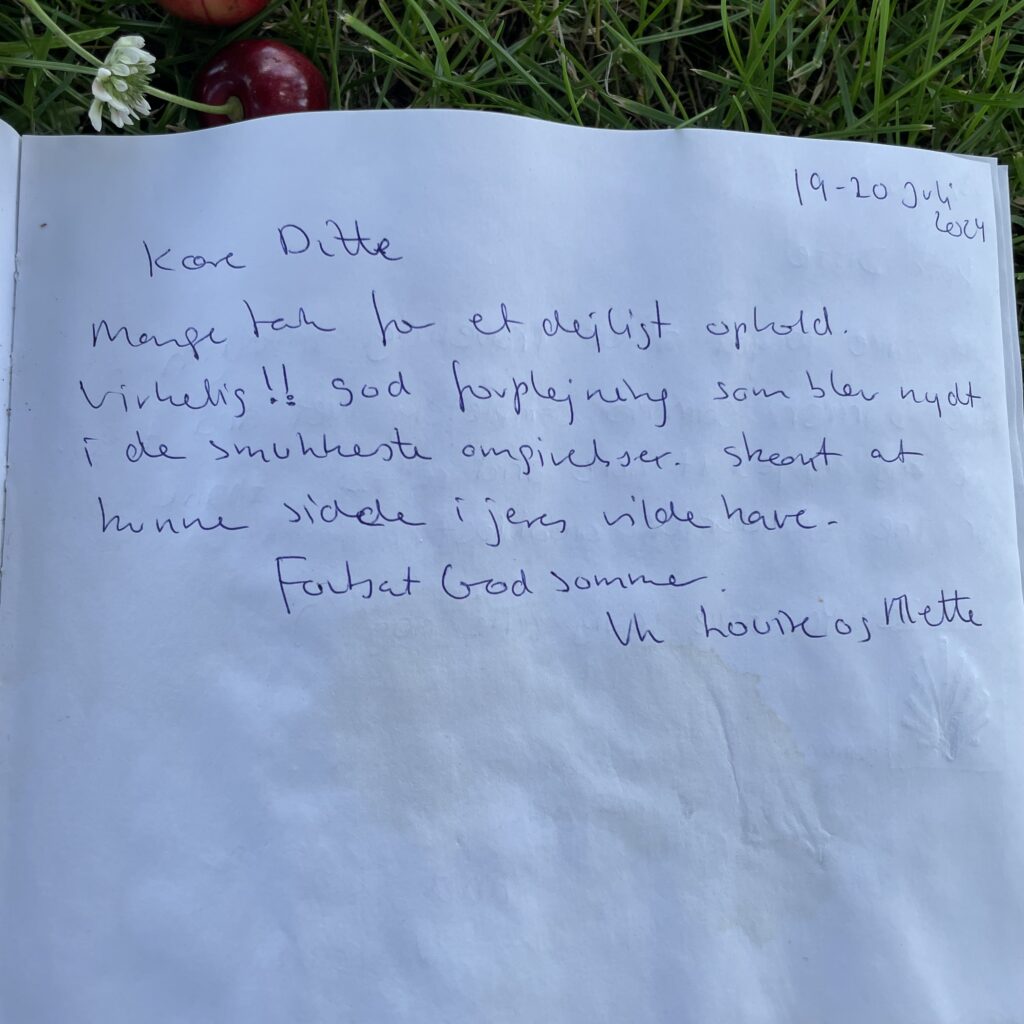 19-20 Juli
2024
Kære Ditte
Mange tak for et dejligt ophold.
Virkelig!! god forplejning som blev nydt
i de smukkeste omgivelser. skønt at
kunne sidde i jeres vilde have.
Fortsat God sommer.
Vh Louise og Mette